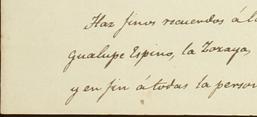 Haz finos recuerdos á la
Gualupe Espino, la Zoraya,
y en fin á todas la person